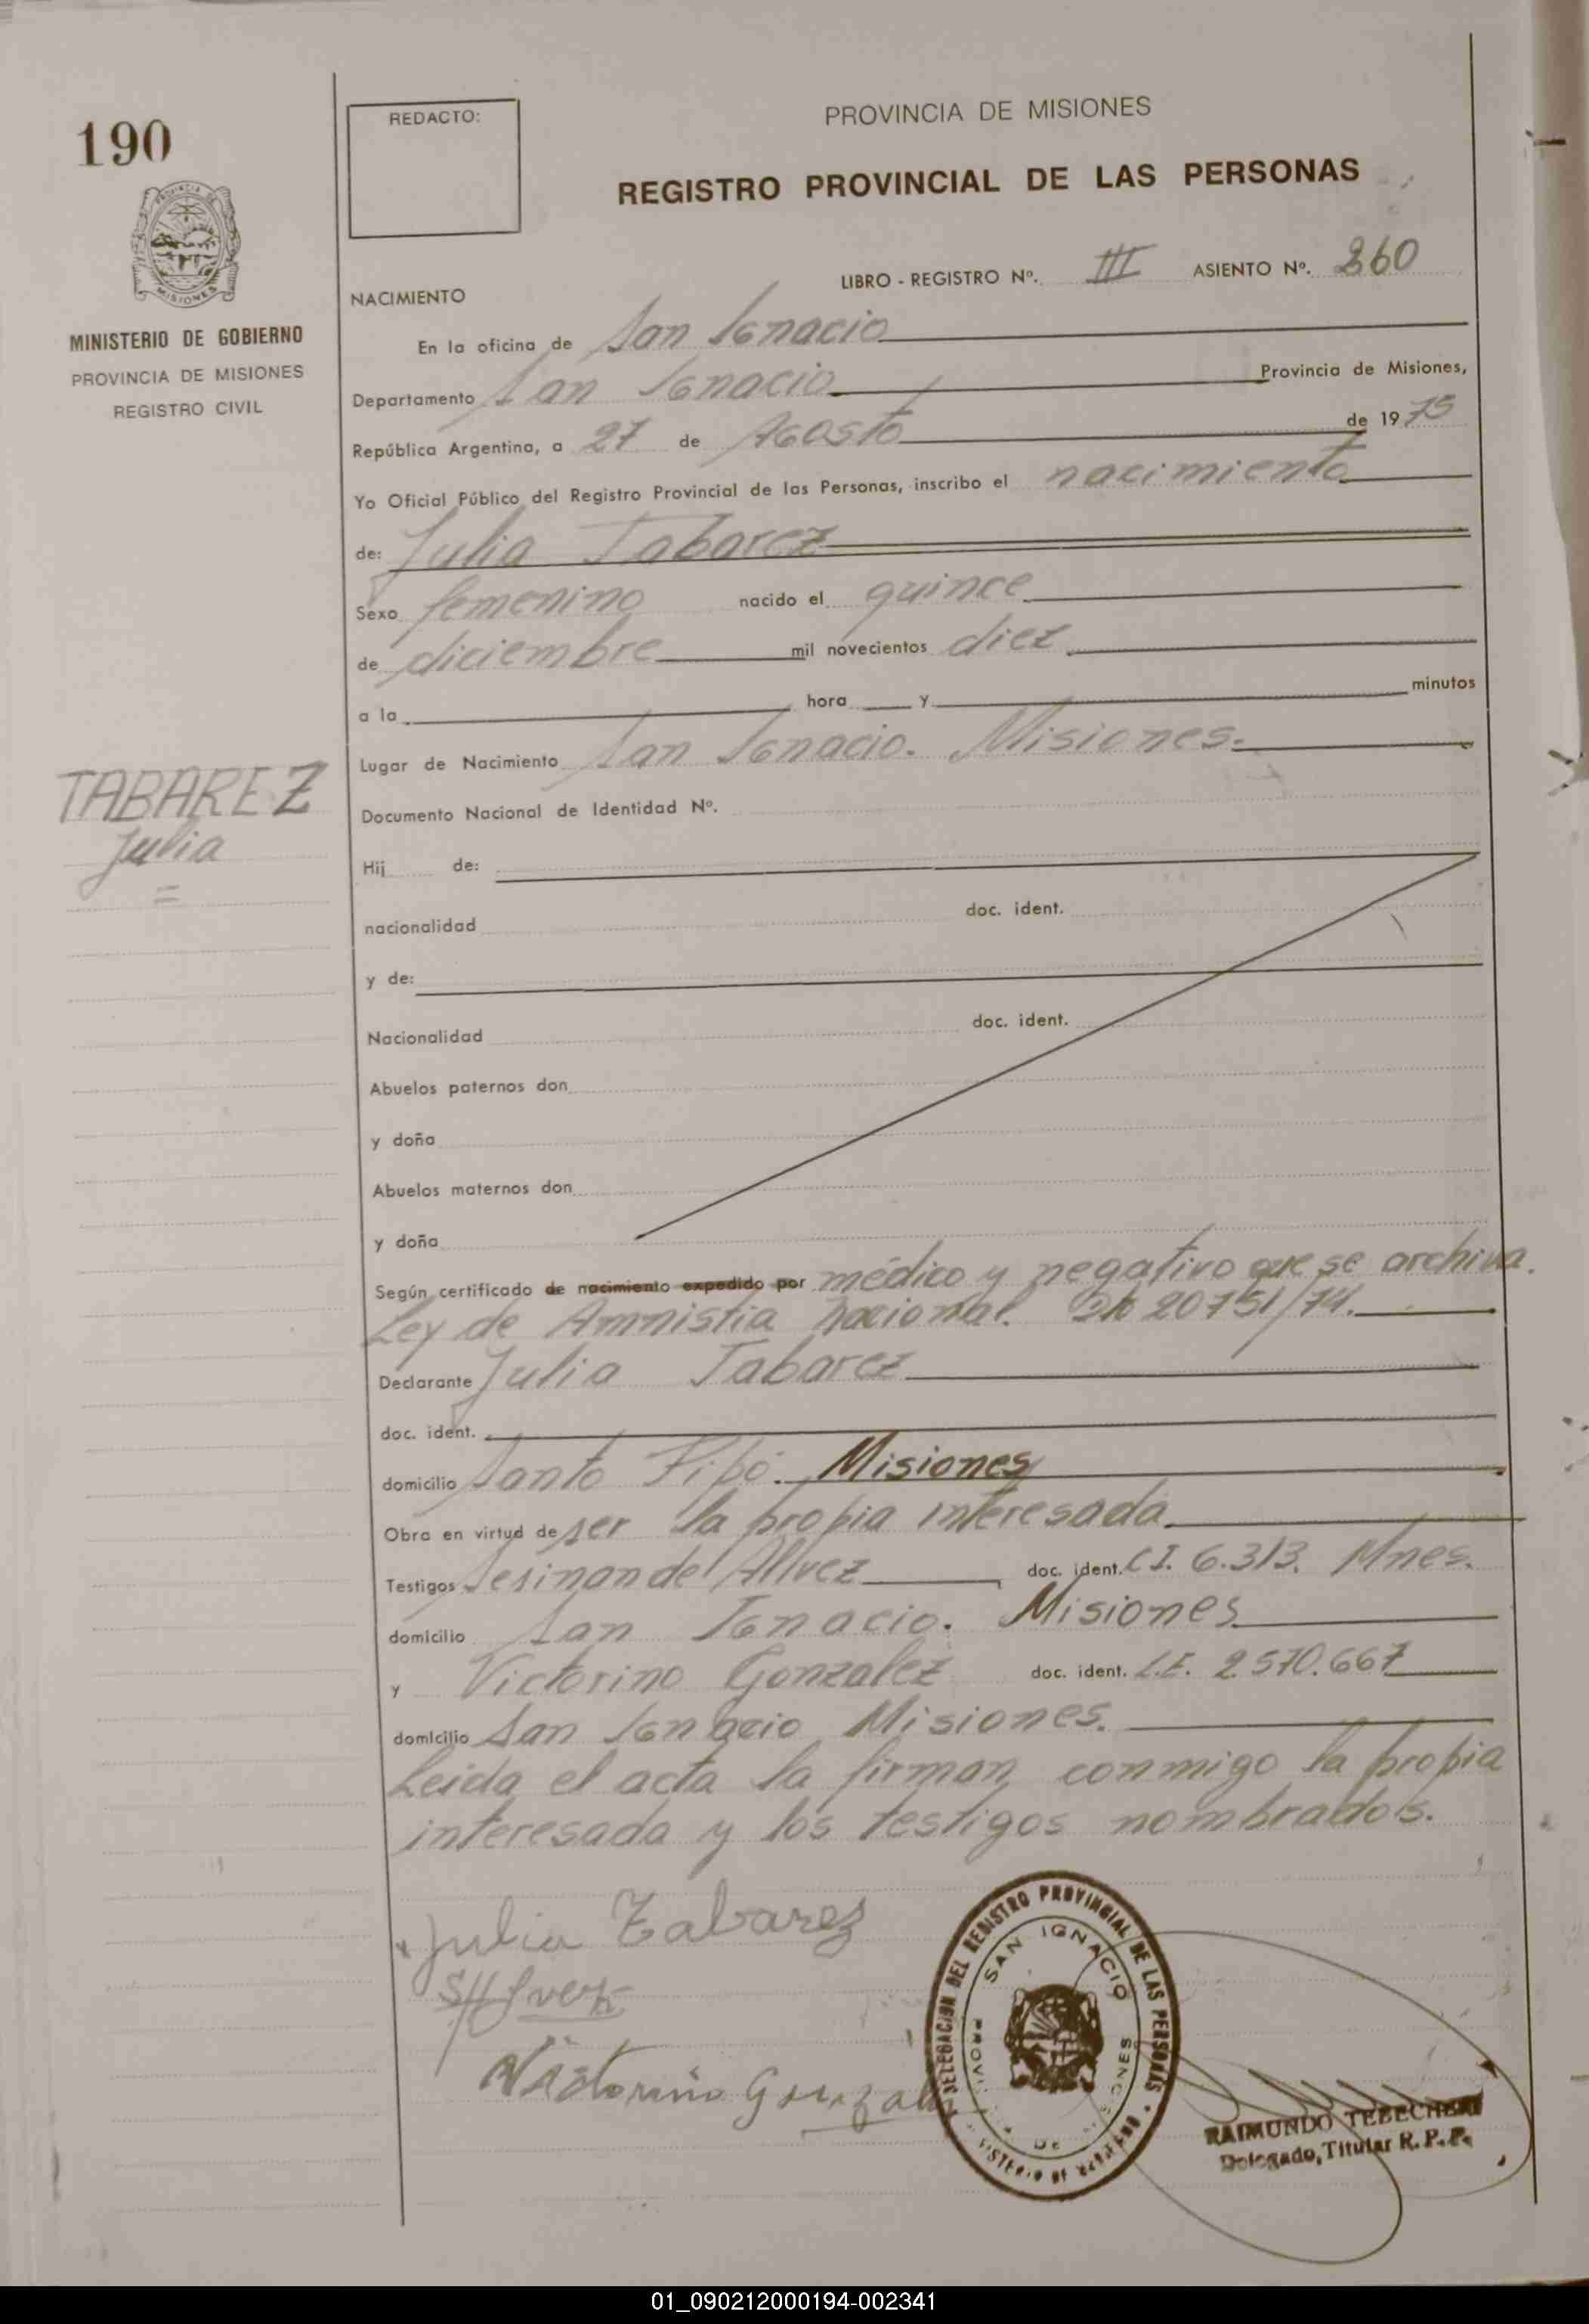 190
REDACTO:
PROVINCIA DE MISIONES
REGISTRO PROVINCIAL DE LAS PERSONAS
PROVINCIA DE MISIONES
MINISTERIO DE GOBIERNO
PROVINCIA DE MISIONES
REGISTRO CIVIL
LIBRO - REGISTRO Nº. III ASIENTO Nº. 260
NACIMIENTO
En la oficina de San Ignacio
Departamento San Ignacio Provincia de Misiones,
República Argentina, a 27 de Agosto de 1975
Yo Oficial Público del Registro Provincial de las Personas, inscribo el nacimiento
de: Julia Tabarez
Sexo femenino nacido el quince
de diciembre mil novecientos diez
a la hora y minutos
Lugar de Nacimiento San Ignacio. Misiones.
TABAREZ
Julia
Documento Nacional de Identidad Nº.
Hij de:
nacionalidad doc. ident.
y de:
Nacionalidad doc. ident.
Abuelos paternos don
y doña
Abuelos maternos don
y doña
Según certificado de nacimiento expedido por médico y negativo que se archiva.
Ley de Amnistia nacional. 20751/74.
Declarante Julia Tabarez
doc. ident.
domicilio Santo Pipó. Misiones
Obra en virtud de ser la propia interesada
Testigos Sesinande Allvez doc. ident. C.I. 6.313. Mnes.
domicilio San Ignacio. Misiones
y Victorino Gonzalez doc. ident. L.E. 2.570.667
domicilio San Ignacio Misiones.
Leida el acta la firman conmigo la propia
interesada y los testigos nombrados.
Julia Tabarez
Victorino Gonzal
DELEGACION DEL REGISTRO PROVINCIAL DE LAS PERSONAS
SAN IGNACIO
RAIMUNDO TEBECHERI
Delegado, Titular R. P. P.
01_090212000194-002341